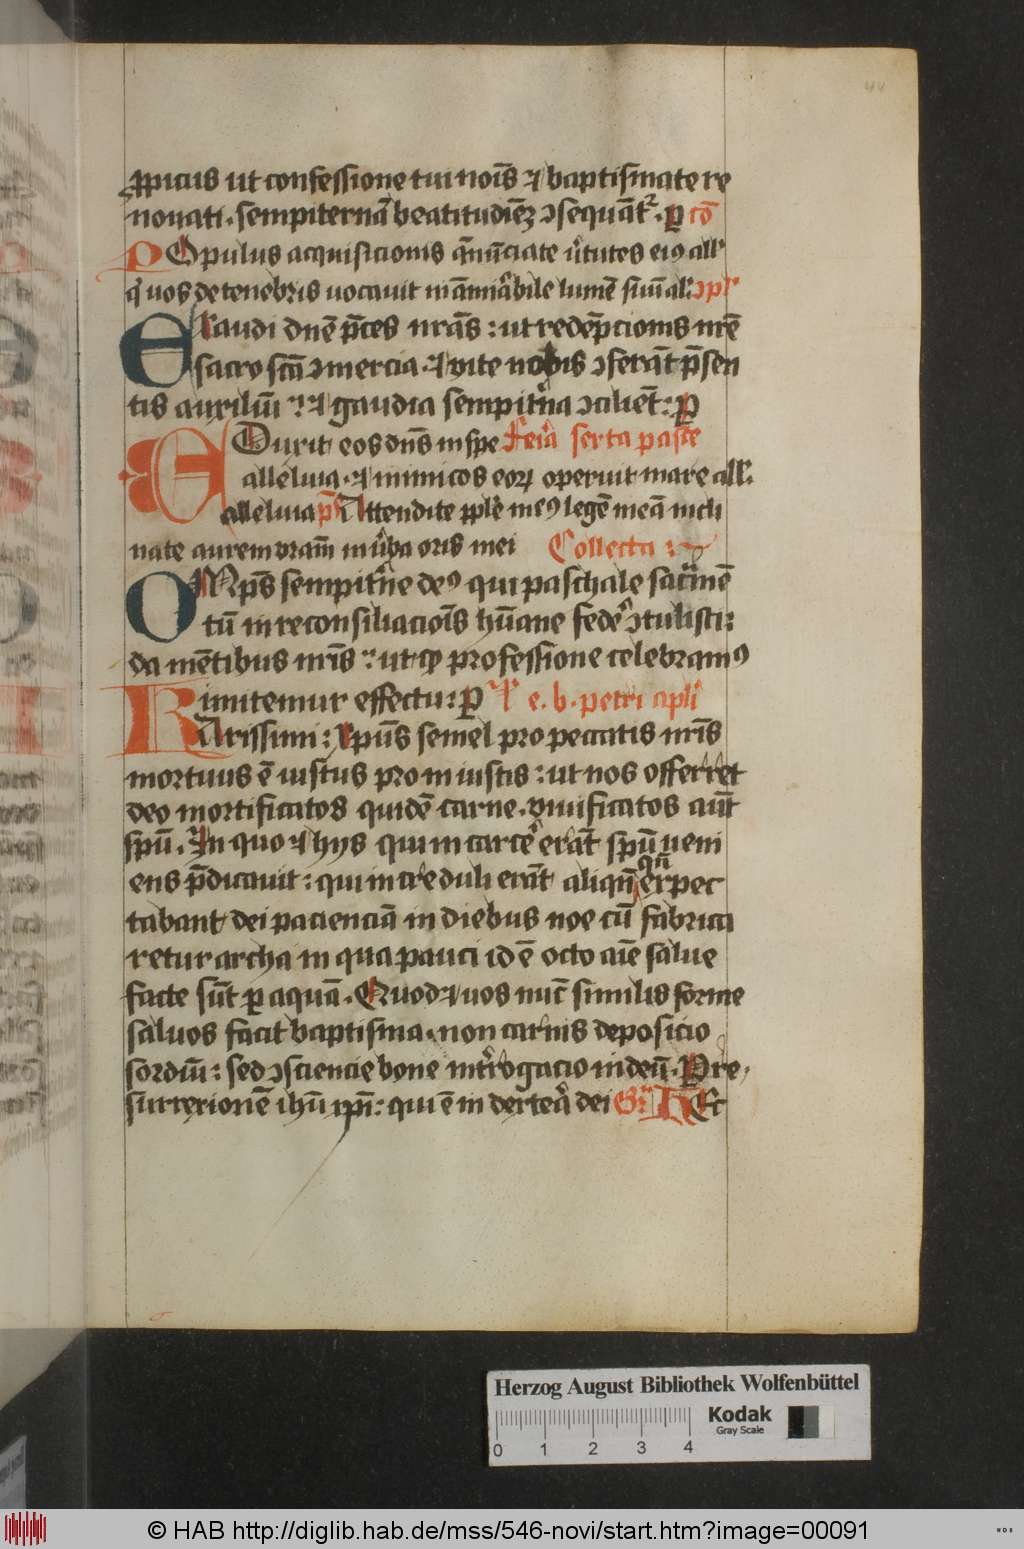 44
ꝓpicius ut confessione tui noīs ⁊ baptisınate re
nouati . sempiternā beatitudīeꝫ ɔsequāt᷑ . ꝑ cō
POpulus acquisicionis ānūciate ỽtutes eiꝯ all'
q̇ uos de tenebris uocauit in āmirabile lumē suū al' ɔpl'
EXaudi dn̄e p̄ces nr̄as : ut redēpcionis nr̄e
sacro sc̄a ɔmercia . ⁊ vite nobis ɔferāt p̄sen
tis auxiliū : ⁊ gaudia sempit'na ɔciliēt : ꝑ
EDuxit eos dn̄s in spe Feria sexta pasce
alleluia . ⁊ inimicos eoꝝ operuit mare all'.
alleluia p̄s Attendite pple meꝯ legē meā incli
nate aurem vram̄ in ỽba oris mei Collecta :
OMnps̄ sempit'ne deꝯ qui paschale sac̄mē
tū in reconsiliacioīs hūane fede' ɔtulisti :
da mētibus nr̄is : ut qđ professione celebramꝯ
imitemur effectu : ꝑ Ep̄l' e . b . petri apl'i
KArissimi : xpūs semel pro peccatis nr̄is
mortuus ē iustus pro iniustis : ut nos offerret
deo mortificatos quidē carne . viuificatos aūt
spū . In quo ⁊ hijs qui in carce' erāt spū ueni
ens p̄dicauit : qui increduli erāt aliqn̄ qn̄ expec
tabant dei pacienciā in diebus noe cū fabrica
retur archa in qua pauci id ē octo aīe salue
facte sūt ꝑ aquā . Quod ⁊ uos nūc similis forme
saluos facit baptisma . non carnis deposicio
sordiū : sed ɔsciencie bone int'rogacio in deū . Per re
surrexionē ihū xpī : qui ē in dextera dei Gr̄ Hec
Herzog August Bibliothek Wolfenbüttel
0 1 2 3 4
Kodak
Gray Scale
© HAB http://diglib.hab.de/mss/546-novi/start.htm?image=00091